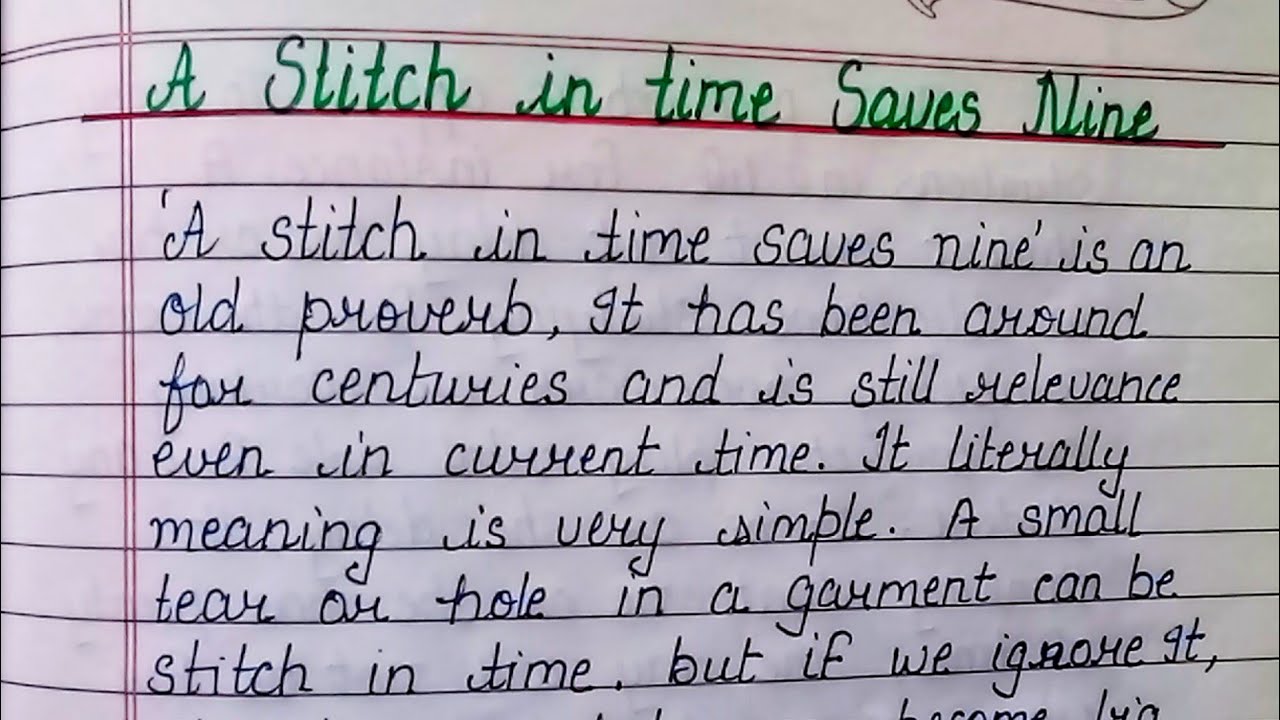 A Stitch in time Saves Nine
'A stitch in time saves nine' is an
old proverb, It has been around
for centuries and is still relevance
even in current time. It literally
meaning is very simple. A small
tear or hole in a garment can be
stitch in time. but if we ignore It,
become